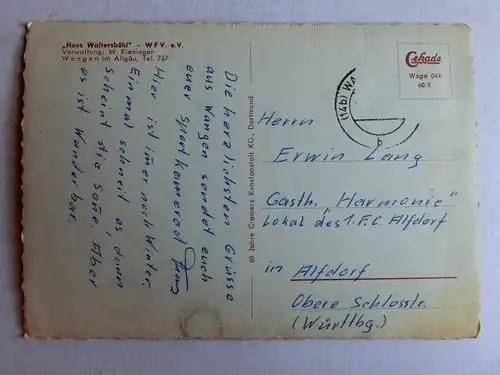 „Haus Waltersbühl" - WFV. e.V.
Verwaltung: W. Kieninger
Wangen im Allgäu, Tel. 767
Die herzlichsten Grüsse
aus Wangen sendet euch
euer Sportkamerad Franz
Hier ist imer noch Winter.
Einmal schneit es, dann
scheint die Sone. Aber
es ist Wunderbar.
60 Jahre Cramers Kunstanstalt KG., Dortmund
Cekade
Wage 044
60 5
(14b) Wa
b
Herrn
Erwin Lang
Gasth. "Harmonie"
Lokal des 1.F.C. Alfdorf
in Alfdorf
Obere Schlosstr.
(Württbg.)